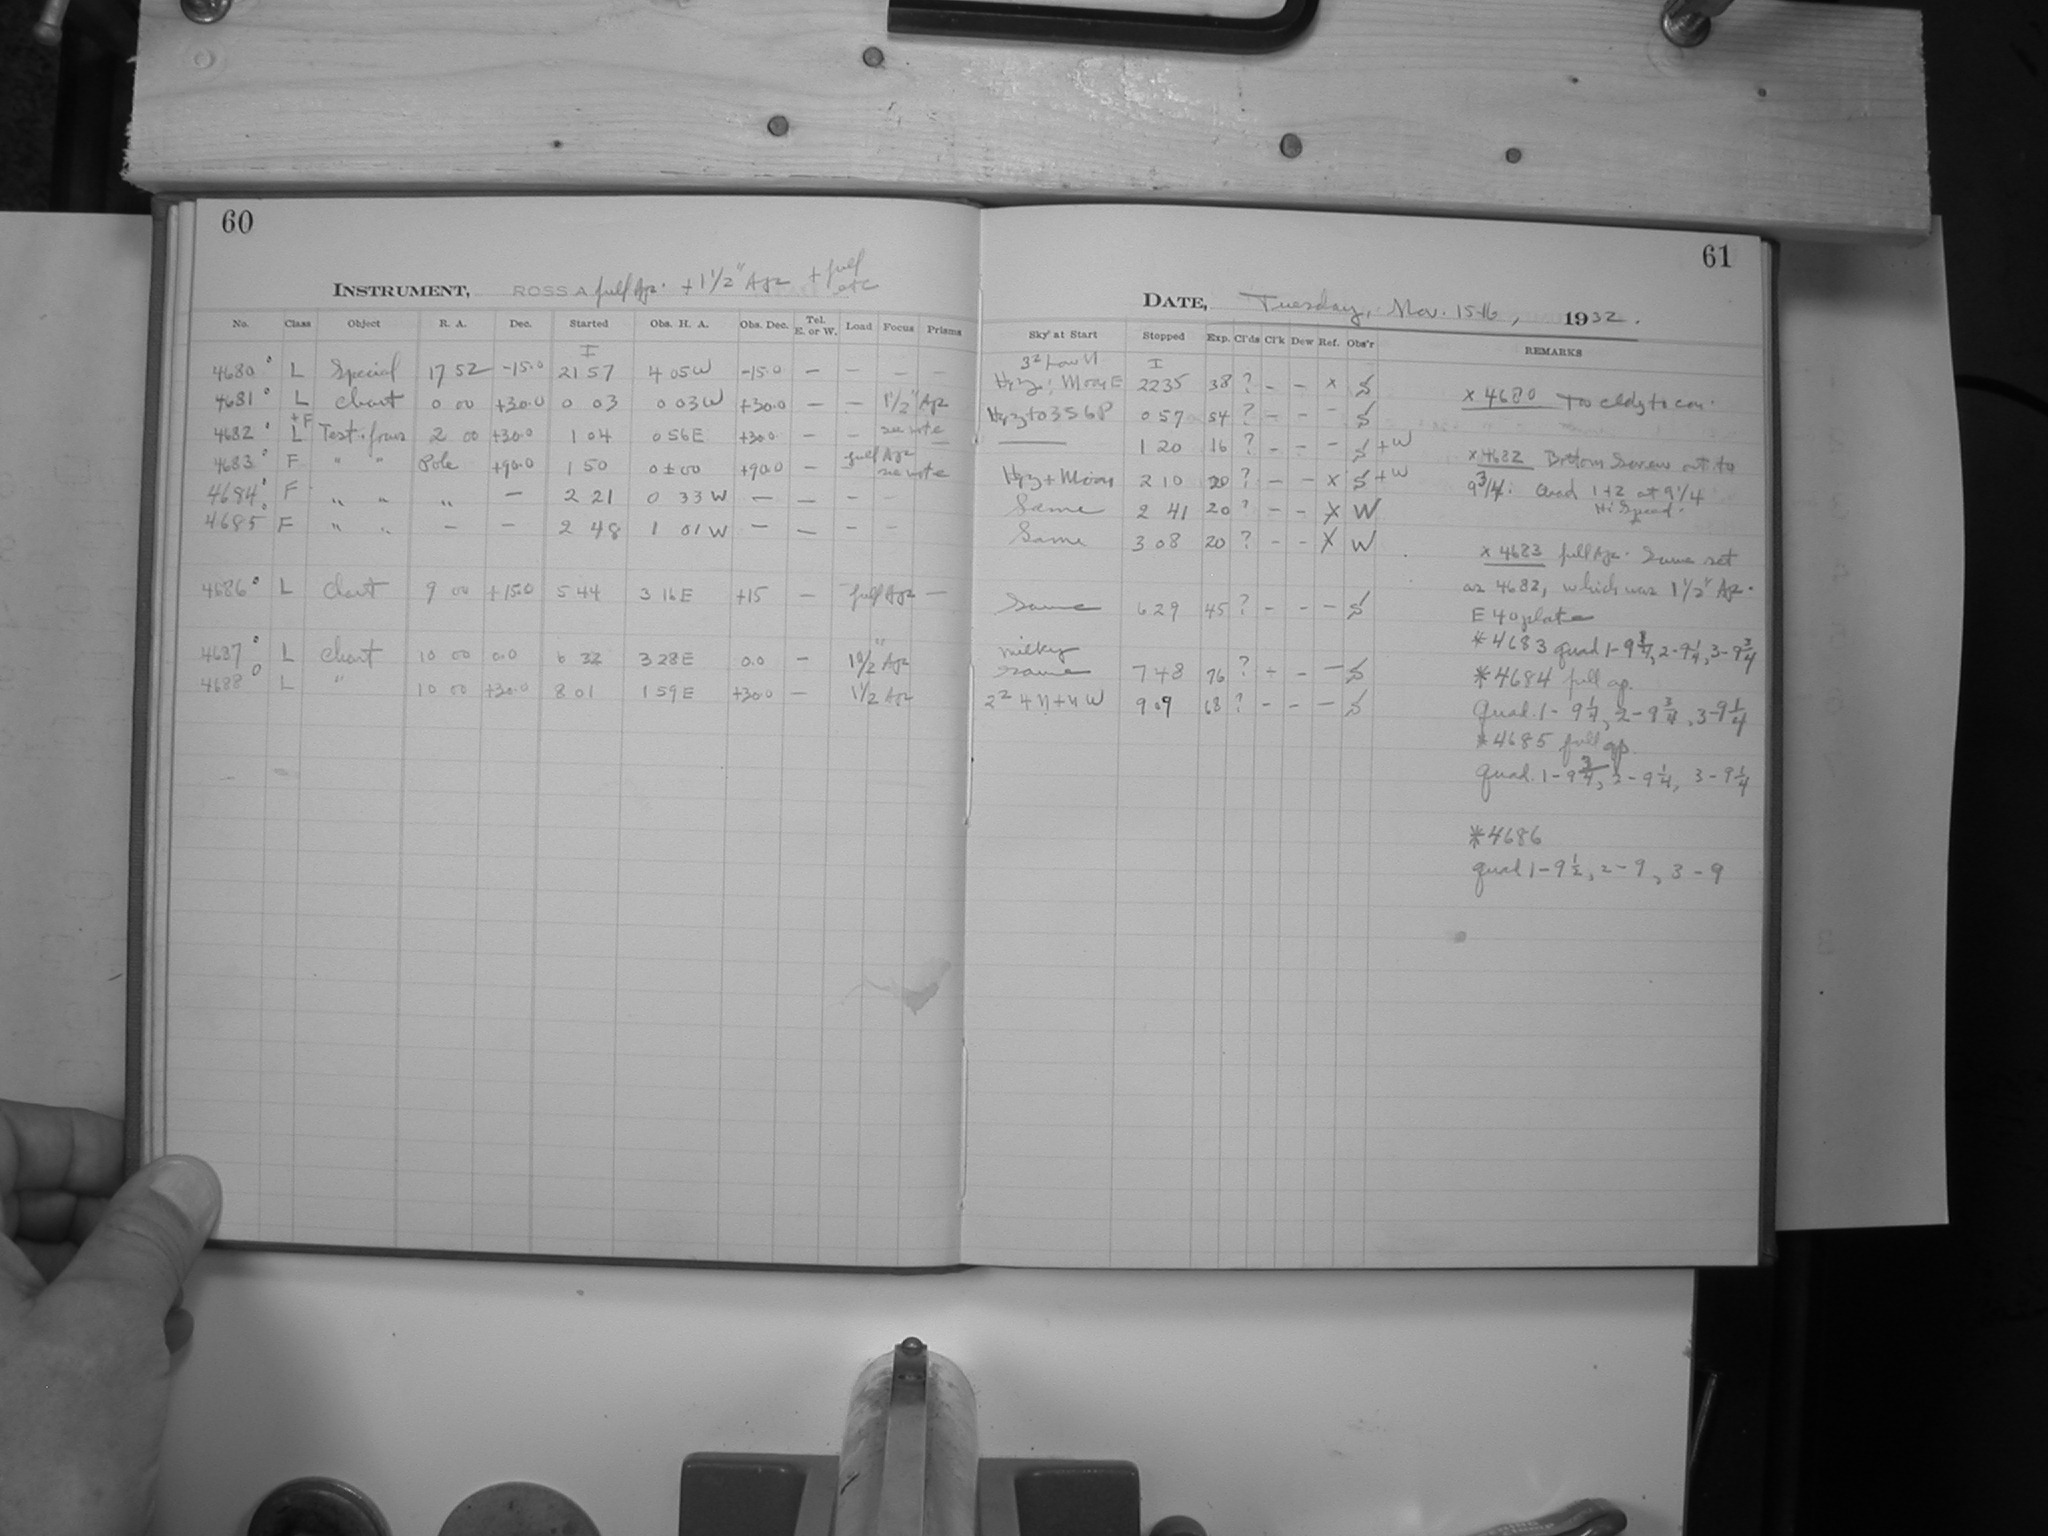 60
INSTRUMENT, ROSS A full Apr. + 1 1/2" Apr + full etc
No. Class Object R. A. Dec. Started Obs. H. A. Obs. Dec. Tel. E. or W. Load Focus Prisms
I
4680 L Special 17 52 -15.0 21 57 4 05 W -15.0 — — — —
4681 L Chart 0 00 +30.0 0 03 0 03 W +30.0 — — 1 1/2" Apr
4682 L+F Test focus 2 00 +30.0 1 04 0 56 E +30.0 — — see note —
4683 F " " Pole +90.0 1 50 0 ± 00 +90.0 — full Apr see note
4684 F " " " — 2 21 0 33 W — — — —
4685 F " " — — 2 48 1 01 W — — — —
4686 L Chart 9 00 +15.0 5 44 3 16 E +15 — full Apr —
4687 L Chart 10 00 0.0 6 32 3 28 E 0.0 — 1 1/2" Apr
4688 L " 10 00 +30.0 8 01 1 59 E +30.0 — 1 1/2 Apr
61
DATE, Tuesday, Nov. 15-16, 1932.
Sky at Start Stopped Exp. Cl'ds Cl'k Dew Ref. Obs'r REMARKS
3² Low N I
Hzy; Moon E 22 35 38 ? - - x S
Hzy to 3 S 6 P 0 57 54 ? - - - S
— 1 20 16 ? - - - S + W
Hzy + Moon 2 10 20 ? - - x S + W
Same 2 41 20 ? - - X W
Same 3 08 20 ? - - X W
Same 6 29 45 ? - - - S
milky
same 7 48 76 ? + - - S
2² 4 N + 4 W 9 09 68 ? - - - S
x 4680 Too cldy to con.
x 4682 Bottom Screw out to
9 3/4. Quad 1+2 at 9 1/4
Hi Speed.
x 4683 full Apr. Same set
as 4682, which was 1 1/2" Apr.
E 40 plate
*4683 quad 1-9 1/4, 2-9 1/4, 3-9 3/4
*4684 full ap.
Quad. 1- 9 1/4, 2-9 3/4, 3-9 1/4
*4685 full ap.
quad. 1-9 3/4, 2-9 1/4, 3-9 1/4
*4686
quad 1-9 1/2, 2-9, 3-9